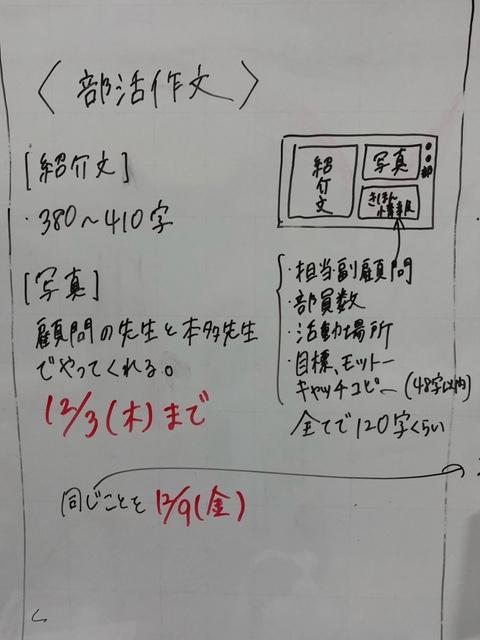 〈部活作文〉
[紹介文]
・380〜410字
[写真]
顧問の先生と本多先生
でやってくれる。
12/3(木)まで
紹介文
写真
きほん
情報
部
・担当副顧問
・部員数
・活動場所
・目標、モットー
キャッチコピー(48字以内)
全てで120字くらい
同じことを 12/9(金)